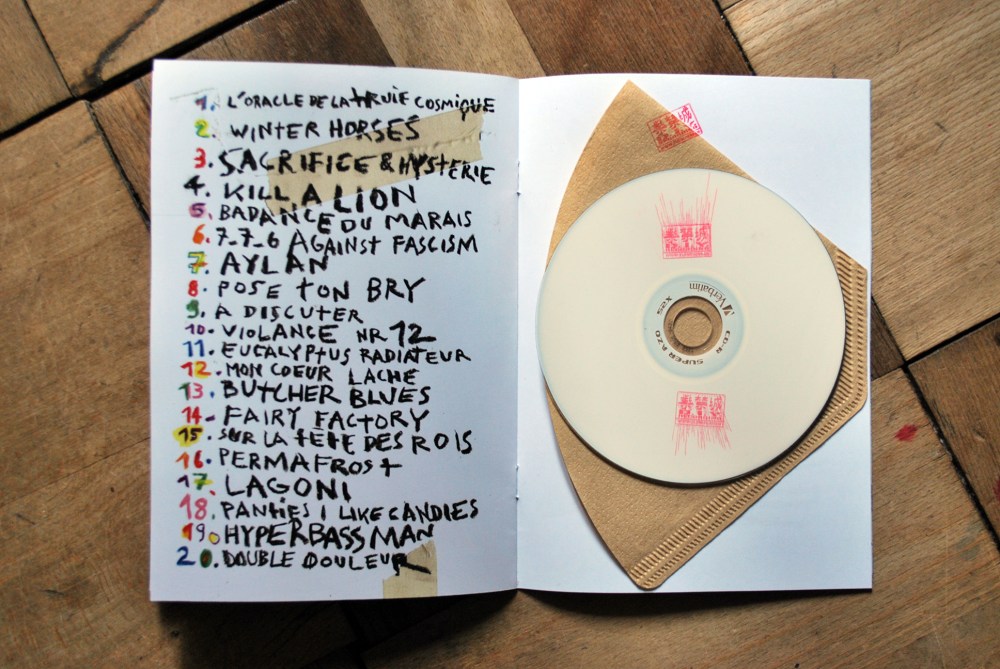 1. L'ORACLE DE LA TRUIE COSMIQUE
2. WINTER HORSES
3. SACRIFICE & HYSTERIE
4. KILL A LION
5. BADANCE DU MARAIS
6. 7_7_6 AGAINST FASCISM
7. AYLAN
8. POSE TON BRY
9. A DISCUTER
10. VIOLANCE NR 12
11. EUCALYPTUS RADIATEUR
12. MON COEUR LACHE
13. BUTCHER BLUES
14. FAIRY FACTORY
15. SUR LA TÊTE DES ROIS
16. PERMAFROST
17. LAGONI
18. PANTIES I LIKE CANDIES
19. HYPERBASS MAN
20. DOUBLE DOULEUR
Verbatim
52x
CD-R SUPER AZO